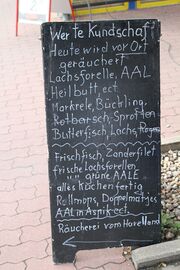 Werte Kundschaft
Heute wird vor Ort
geräuchert
Lachsforelle, AAL
Heilbutt, ect.
Makrele, Bückling,
Rotbarsch, Sprotten
Butterfisch, Lachs,
Frischfisch, Zanderfilet
frische Lachsforellen
"" grüne AALE
alles küchenfertig
Rollmops, Doppelmatjes
AAL in Aspik ect.
Räucherei vom Havelland